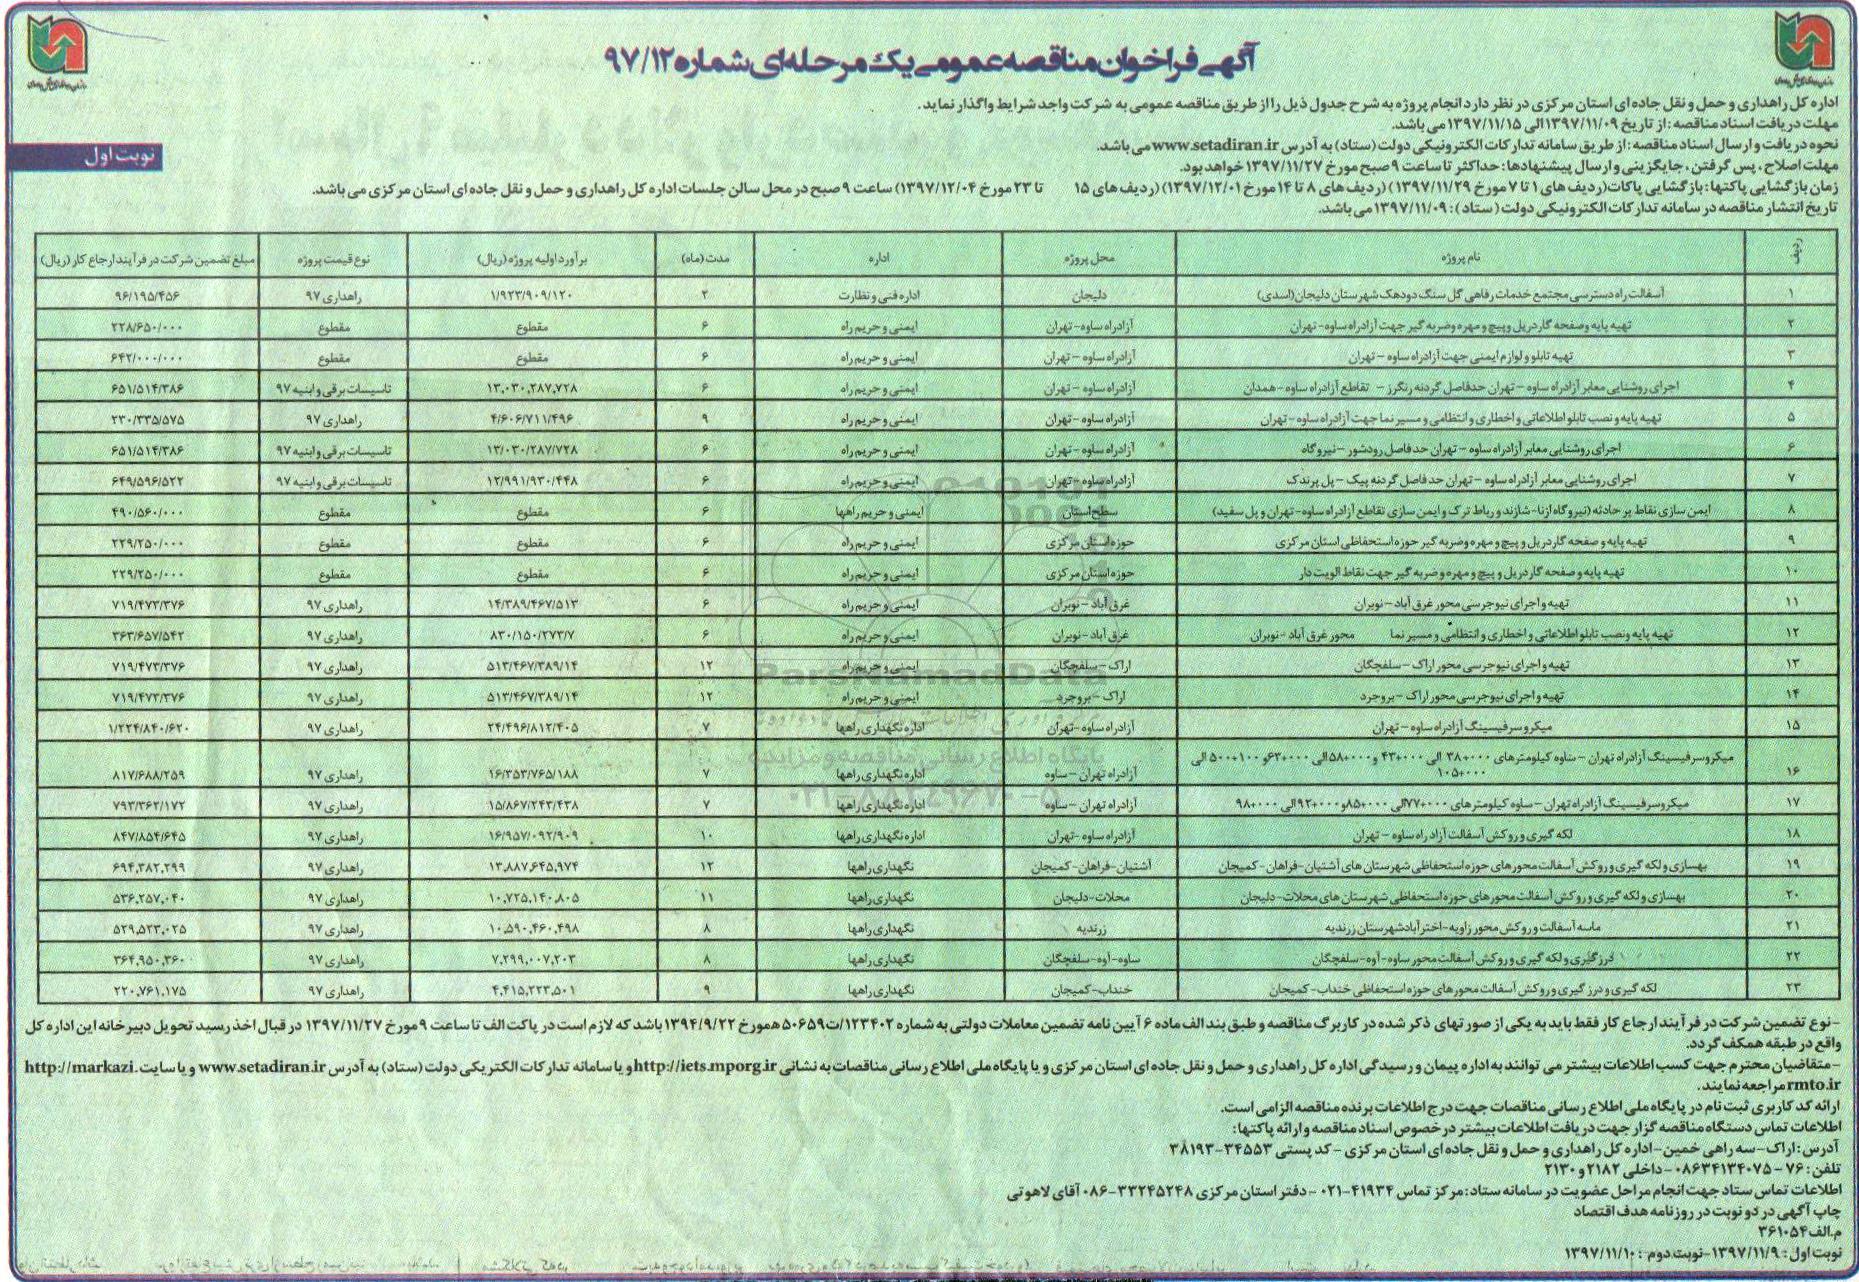 آگهی فراخوان مناقصه عمومی یک مرحله‌ای شماره ۹۷/۱۲
اداره کل راهداری و حمل و نقل جاده ای استان مرکزی در نظر دارد انجام پروژه به شرح جدول ذیل را از طریق مناقصه عمومی به شرکت واجد شرایط واگذار نماید.
مهلت دریافت اسناد مناقصه : از تاریخ ۱۳۹۷/۱۱/۰۹ الی ۱۳۹۷/۱۱/۱۵ می باشد.
نوبت اول
نحوه دریافت و ارسال اسناد مناقصه : از طریق سامانه تدارکات الکترونیکی دولت (ستاد) به آدرس www.setadiran.ir می باشد.
مهلت اصلاح ، پس گرفتن ، جایگزینی و ارسال پیشنهادها: حداکثر تا ساعت ۹ صبح مورخ ۱۳۹۷/۱۱/۲۷ خواهد بود.
زمان بازگشایی پاکتها : بازگشایی پاکات (ردیف های ۱ تا ۷ مورخ ۱۳۹۷/۱۱/۲۹) (ردیف های ۸ تا ۱۴ مورخ ۱۳۹۷/۱۲/۰۱) (ردیف های ۱۵ تا ۲۳ مورخ ۱۳۹۷/۱۲/۰۴) ساعت ۹ صبح در محل سالن جلسات اداره کل راهداری و حمل و نقل جاده ای استان مرکزی می باشد.
تاریخ انتشار مناقصه در سامانه تدارکات الکترونیکی دولت (ستاد) : ۱۳۹۷/۱۱/۰۹ می باشد.
ردیف نام پروژه محل پروژه اداره مدت (ماه) برآورد اولیه پروژه (ریال) نوع قیمت پروژه مبلغ تضمین شرکت در فرآیند ارجاع کار (ریال)
۱ آسفالت راه دسترسی مجتمع خدمات رفاهی گل سنگ دودهک شهرستان دلیجان (اسدی) دلیجان اداره فنی و نظارت ۲ ۱/۹۲۳/۹۰۹/۱۲۰ راهداری ۹۷ ۹۶/۱۹۵/۴۵۶
۲ تهیه پایه و صفحه گاردریل و پیچ و مهره و ضربه گیر جهت آزادراه ساوه- تهران آزادراه ساوه - تهران ایمنی و حریم راه ۶ مقطوع مقطوع ۲۲۸/۶۵۰/۰۰۰
۳ تهیه تابلو و لوازم ایمنی جهت آزادراه ساوه - تهران آزادراه ساوه - تهران ایمنی و حریم راه ۶ مقطوع مقطوع ۶۴۲/۰۰۰/۰۰۰
۴ اجرای روشنایی معابر آزادراه ساوه - تهران حدفاصل گردنه رنگرز - تقاطع آزادراه ساوه-همدان آزادراه ساوه - تهران ایمنی و حریم راه ۶ ۱۳,۰۳۰,۲۸۷,۷۲۸ تاسیسات برقی و ابنیه ۹۷ ۶۵۱/۵۱۴/۳۸۶
۵ تهیه پایه و نصب تابلو اطلاعاتی و اخطاری و انتظامی و مسیر نما جهت آزادراه ساوه- تهران آزادراه ساوه - تهران ایمنی و حریم راه ۹ ۴/۶۰۶/۷۱۱/۴۹۶ راهداری ۹۷ ۲۳۰/۳۳۵/۵۷۵
۶ اجرای روشنایی معابر آزادراه ساوه - تهران حدفاصل رودشور - نیروگاه آزادراه ساوه - تهران ایمنی و حریم راه ۶ ۱۳/۰۳۰/۲۸۷/۷۲۸ تاسیسات برقی و ابنیه ۹۷ ۶۵۱/۵۱۴/۳۸۶
۷ اجرای روشنایی معابر آزادراه ساوه - تهران حدفاصل گردنه پیک - پل پرندک آزادراه ساوه - تهران ایمنی و حریم راه ۶ ۱۲/۹۹۱/۹۳۰/۴۴۸ تاسیسات برقی و ابنیه ۹۷ ۶۴۹/۵۹۶/۵۲۲
۸ ایمن سازی نقاط پر حادثه (نیروگاه ازنا- شازند و رباط ترک و ایمن سازی تقاطع آزادراه ساوه- تهران و پل سفید) سطح استان ایمنی و حریم راهها ۶ مقطوع مقطوع ۴۹۰/۵۶۰/۰۰۰
۹ تهیه پایه و صفحه گاردریل و پیچ و مهره و ضربه گیر حوزه استحفاظی استان مرکزی حوزه استان مرکزی ایمنی و حریم راه ۶ مقطوع مقطوع ۲۲۹/۲۵۰/۰۰۰
۱۰ تهیه پایه و صفحه گاردریل و پیچ و مهره و ضربه گیر جهت نقاط الویت دار حوزه استان مرکزی ایمنی و حریم راه ۶ مقطوع مقطوع ۲۲۹/۲۵۰/۰۰۰
۱۱ تهیه و اجرای نیوجرسی محور غرق آباد - نوبران غرق آباد - نوبران ایمنی و حریم راه ۶ ۱۴/۳۸۹/۴۶۷/۵۱۳ راهداری ۹۷ ۷۱۹/۴۷۳/۳۷۶
۱۲ تهیه پایه و نصب تابلو اطلاعاتی و اخطاری و انتظامی و مسیر نما محور غرق آباد - نوبران غرق آباد - نوبران ایمنی و حریم راه ۶ ۸۳۰/۱۵۰/۲۷۳/۷ راهداری ۹۷ ۳۶۳/۶۵۷/۵۴۲
۱۳ تهیه و اجرای نیوجرسی محور اراک - سلفچگان اراک - سلفچگان ایمنی و حریم راه ۱۲ ۵۱۳/۴۶۷/۳۸۹/۱۴ راهداری ۹۷ ۷۱۹/۴۷۳/۳۷۶
۱۴ تهیه و اجرای نیوجرسی محور اراک - بروجرد اراک - بروجرد ایمنی و حریم راه ۱۲ ۵۱۳/۴۶۷/۳۸۹/۱۴ راهداری ۹۷ ۷۱۹/۴۷۳/۳۷۶
۱۵ میکرو سرفیسینگ آزادراه ساوه - تهران آزادراه ساوه - تهران اداره نگهداری راهها ۷ ۲۴/۴۹۶/۸۱۲/۴۰۵ راهداری ۹۷ ۱/۲۲۴/۸۴۰/۶۲۰
۱۶ میکروسرفیسینگ آزادراه تهران - ساوه کیلومترهای ۰۰۰+۳۸ الی ۰۰۰+۴۳ و ۰۰۰+۵۸ الی ۰۰۰+۶۳ و ۱۰۰+۵۰۰ الی ۰۰۰+۱۰۵ آزادراه تهران - ساوه اداره نگهداری راهها ۷ ۱۶/۳۵۳/۷۶۵/۱۸۸ راهداری ۹۷ ۸۱۷/۶۸۸/۲۵۹
۱۷ میکروسرفیسینگ آزادراه تهران - ساوه کیلومترهای ۰۰۰+۷۷ الی ۰۰۰+۸۵ و ۰۰۰+۹۲ الی ۰۰۰+۹۸ آزادراه تهران - ساوه اداره نگهداری راهها ۷ ۱۵/۸۶۷/۲۴۳/۴۳۸ راهداری ۹۷ ۷۹۳/۳۶۲/۱۷۲
۱۸ لکه گیری و روکش آسفالت آزادراه ساوه - تهران آزادراه ساوه - تهران اداره نگهداری راهها ۱۰ ۱۶/۹۵۷/۰۹۲/۹۰۹ راهداری ۹۷ ۸۴۷/۸۵۴/۶۴۵
۱۹ بهسازی و لکه گیری و روکش آسفالت محورهای حوزه استحفاظی شهرستان های آشتیان- فراهان- کمیجان آشتیان- فراهان- کمیجان نگهداری راهها ۱۲ ۱۳,۸۸۷,۶۴۵,۹۷۴ راهداری ۹۷ ۶۹۴,۳۸۲,۲۹۹
۲۰ بهسازی و لکه گیری و روکش آسفالت محورهای حوزه استحفاظی شهرستان های محلات- دلیجان محلات- دلیجان نگهداری راهها ۱۱ ۱۰,۷۲۵,۱۴۰,۸۰۵ راهداری ۹۷ ۵۳۶,۲۵۷,۰۴۰
۲۱ ماسه آسفالت و روکش محور زاویه- اخترآباد شهرستان زرندیه زرندیه نگهداری راهها ۸ ۱۰,۵۹۰,۴۶۰,۴۹۸ راهداری ۹۷ ۵۲۹,۵۲۳,۰۲۵
۲۲ درزگیری و لکه گیری و روکش آسفالت محور ساوه- آوه- سلفچگان ساوه- آوه- سلفچگان نگهداری راهها ۸ ۷,۲۹۹,۰۰۷,۲۰۳ راهداری ۹۷ ۳۶۴,۹۵۰,۳۶۰
۲۳ لکه گیری و درزگیری و روکش آسفالت محورهای حوزه استحفاظی خنداب- کمیجان خنداب- کمیجان نگهداری راهها ۹ ۴,۴۱۵,۲۲۳,۵۰۱ راهداری ۹۷ ۲۲۰,۷۶۱,۱۷۵
ParsNamadData
پایگاه اطلاع رسانی مناقصه و مزایده
۰۲۱-۸۸۳۴۹۶۷۰-۵
-نوع تضمین شرکت در فرآیند ارجاع کار فقط باید به یکی از صورتهای ذکر شده در کاربرگ مناقصه و طبق بند الف ماده ۶ آیین نامه تضمین معاملات دولتی به شماره ۱۲۳۴۰۲/ت۵۰۶۵۹ه مورخ ۱۳۹۴/۹/۲۲ باشد که لازم است در پاکت الف تا ساعت ۹ مورخ ۱۳۹۷/۱۱/۲۷ در قبال اخذ رسید تحویل دبیرخانه این اداره کل
واقع در طبقه همکف گردد.
-متقاضیان محترم جهت کسب اطلاعات بیشتر می توانند به اداره پیمان و رسیدگی اداره کل راهداری و حمل و نقل جاده ای استان مرکزی و یا پایگاه ملی اطلاع رسانی مناقصات به نشانی http://iets.mporg.ir و یا سامانه تدارکات الکتریکی دولت (ستاد) به آدرس www.setadiran.ir و یا سایت http://markazi.
rmto.ir مراجعه نمایند.
ارائه کد کاربری ثبت نام در پایگاه ملی اطلاع رسانی مناقصات جهت درج اطلاعات برنده مناقصه الزامی است.
اطلاعات تماس دستگاه مناقصه گزار جهت دریافت اطلاعات بیشتر در خصوص اسناد مناقصه و ارائه پاکتها:
آدرس : اراک - سه راهی خمین - اداره کل راهداری و حمل و نقل جاده ای استان مرکزی - کد پستی ۳۴۵۵۳-۳۸۱۹۳
تلفن : ۷۶ - ۰۸۶۳۴۱۳۴۰۷۵ - داخلی ۲۱۸۲ و ۲۱۳۰
اطلاعات تماس ستاد جهت انجام مراحل عضویت در سامانه ستاد: مرکز تماس ۴۱۹۳۴-۰۲۱ - دفتر استان مرکزی ۳۳۲۴۵۲۴۸-۰۸۶ آقای لاهوتی
چاپ آگهی در دو نوبت در روزنامه هدف اقتصاد
م.الف ۳۶۱۰۵۴
نوبت اول : ۱۳۹۷/۱۱/۹ - نوبت دوم : ۱۳۹۷/۱۱/۱۰